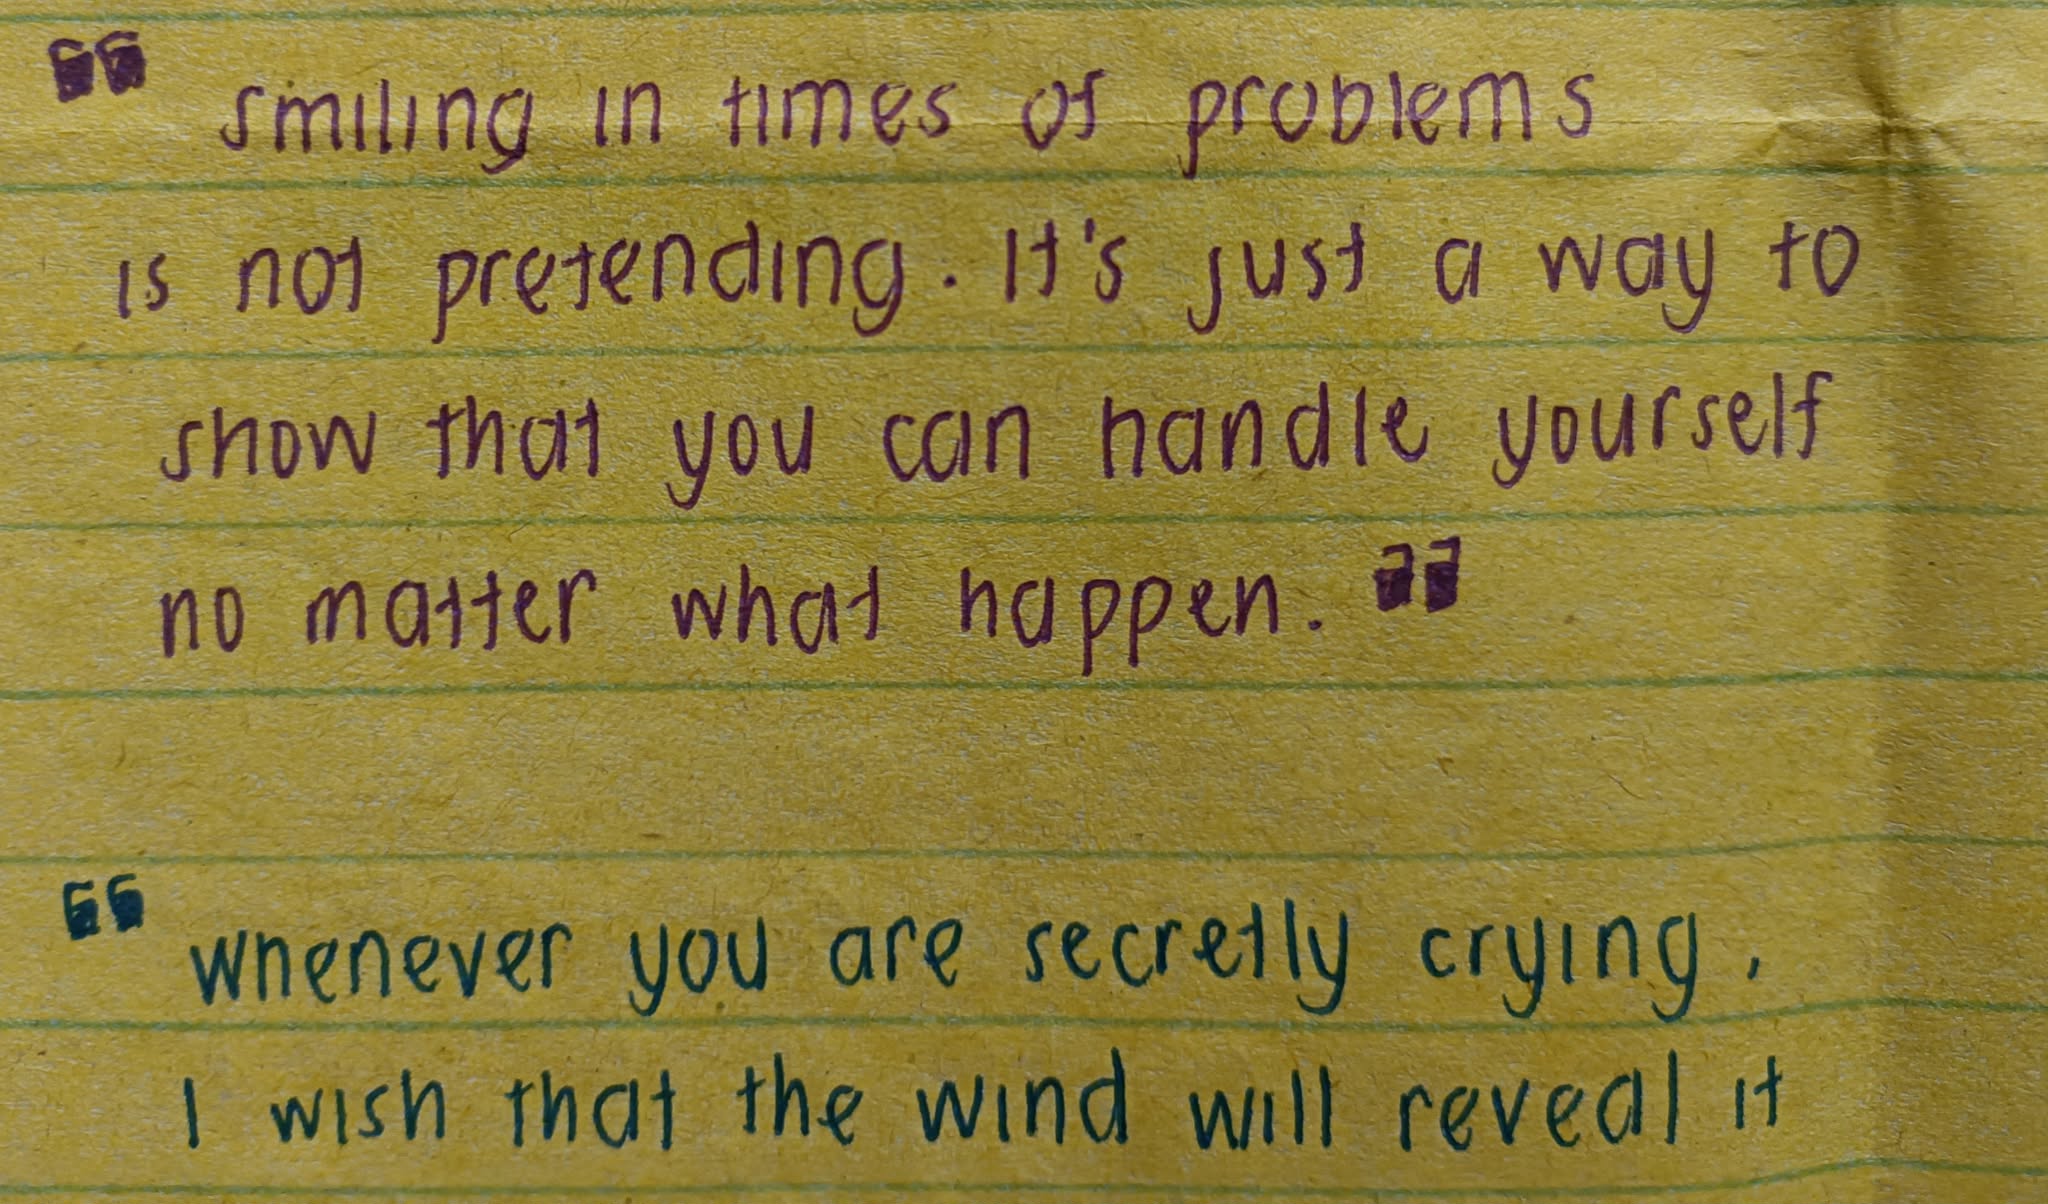 “ smiling in times of problems
is not pretending. It's just a way to
show that you can handle yourself
no matter what happen. ”
“ whenever you are secretly crying,
I wish that the wind will reveal it